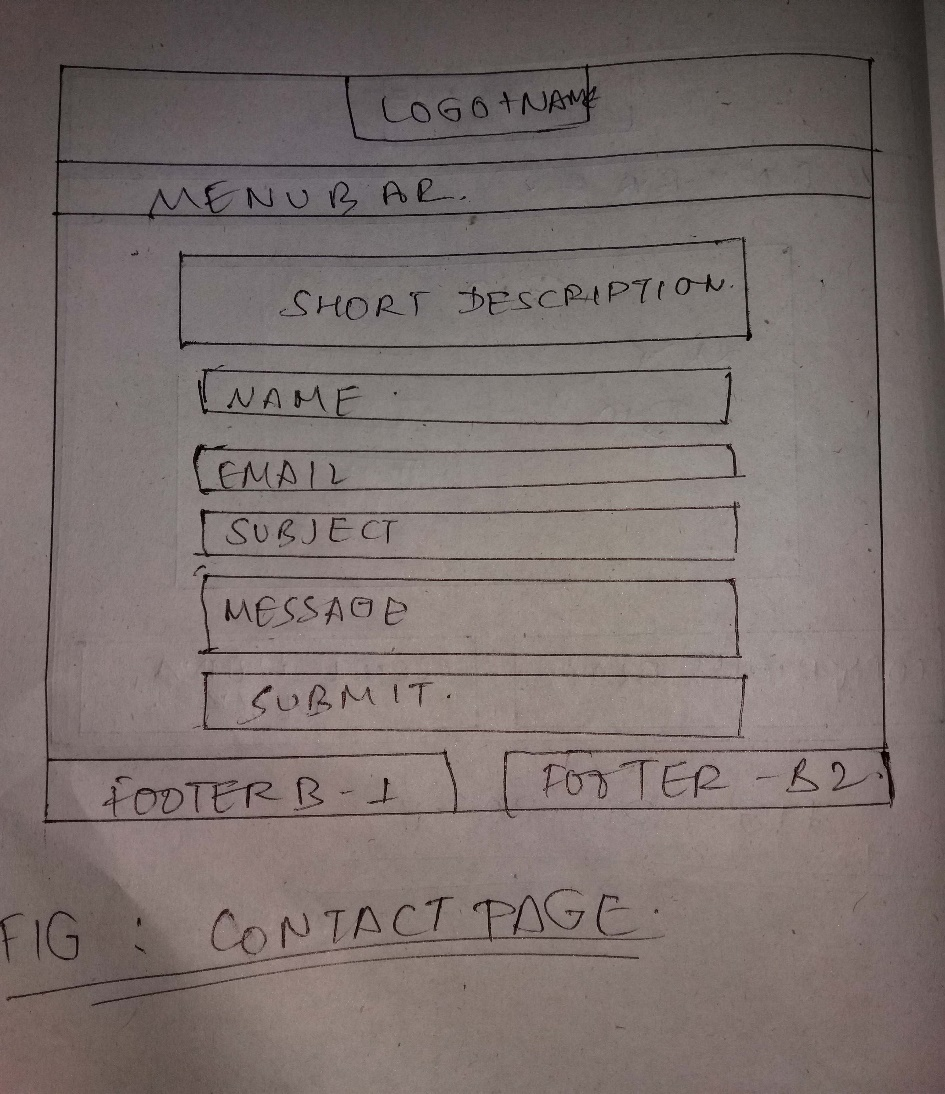 LOGO+NAME
MENUBAR.
SHORT DESCRIPTION.
NAME
EMAIL
SUBJECT
MESSAGE
SUBMIT.
FOOTER B-1 FOOTER-B2.
FIG : CONTACT PAGE.